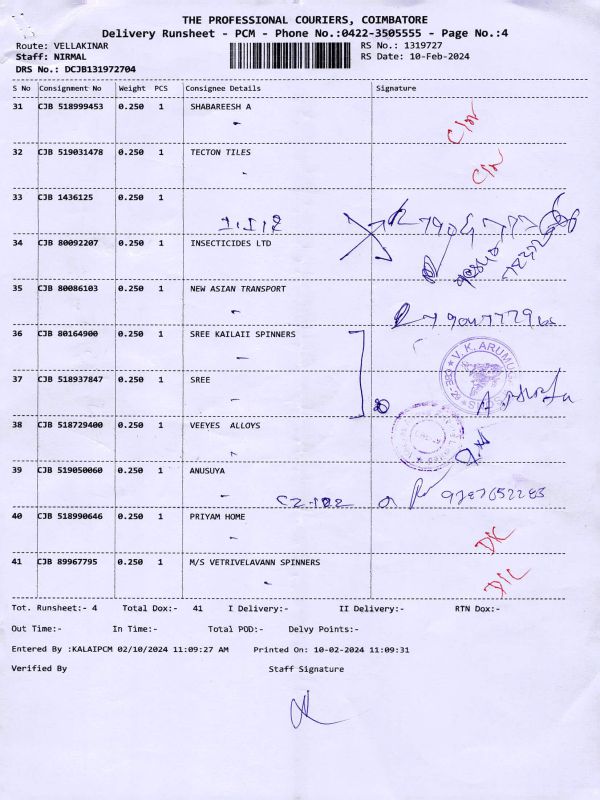 THE PROFESSIONAL COURIERS, COIMBATORE
Delivery Runsheet - PCM - Phone No.:0422-3505555 - Page No.:4
Route: VELLAKINAR RS No.: 1319727
Staff: NIRMAL RS Date: 10-Feb-2024
DRS No.: DCJB131972704
S No Consignment No Weight PCS Consignee Details Signature
31 CJB 518999453 0.250 1 SHABAREESH A
32 CJB 519031478 0.250 1 TECTON TILES
33 CJB 1436125 0.250 1
34 CJB 80092207 0.250 1 INSECTICIDES LTD
35 CJB 80086103 0.250 1 NEW ASIAN TRANSPORT
36 CJB 80164900 0.250 1 SREE KAILAII SPINNERS
V.K. ARUMU
37 CJB 518937847 0.250 1 SREE
38 CJB 518729400 0.250 1 VEEYES ALLOYS
39 CJB 519050060 0.250 1 ANUSUYA
9787652283
40 CJB 518990646 0.250 1 PRIYAM HOME
DIC
41 CJB 89967795 0.250 1 M/S VETRIVELAVANN SPINNERS
DIC
Tot. Runsheet:- 4 Total Dox:- 41 I Delivery:- II Delivery:- RTN Dox:-
Out Time:- In Time:- Total POD:- Delvy Points:-
Entered By :KALAIPCM 02/10/2024 11:09:27 AM Printed On: 10-02-2024 11:09:31
Verified By Staff Signature